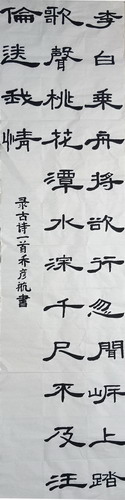 李白乘舟将欲行忽聞岍上踏
歌聲桃花潭水深千尺不及汪
倫送我情
录古诗一首乔彦航書